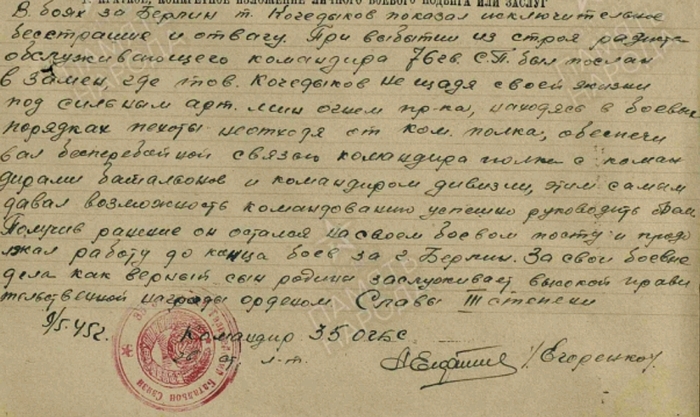 I. КРАТКОЕ, КОНКРЕТНОЕ ИЗЛОЖЕНИЕ ЛИЧНОГО БОЕВОГО ПОДВИГА ИЛИ ЗАСЛУГ
В боях за Берлин т. Кочедыков показал исключительное
бесстрашие и отвагу. При выбытии из строя радиста
обслуживающего командира 76 гв. С.П. был послан
в замен, где тов. Кочедыков не щадя своей жизни
под сильным арт. мин огнем пр-ка, находясь в боевых
порядках пехоты неотходя от ком. полка, обеспечи
вал бесперебойной связью командира полка с коман
дирами батальонов и командиром дивизии, этим самым
давал возможность командованию успешно руководить боем.
Получив ранение он остался на своем боевом посту и продо
лжал работу до конца боев за г. Берлин. За свои боевые
дела как верный сын родины заслуживает высокой прави
тельственной награды орденом Славы III степени
9/5-45г. Командир 35 ОГБС
/Егоренко/
Батальон Связи
ПАМЯТЬ НАРОДА